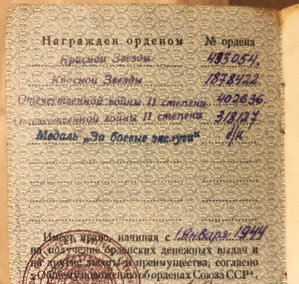 Награжден орденом № ордена
Красной Звезды 493054.
Красной Звезды 1878422
Отечественной войны II степени 402636
Отечественной войны II степени 318127
Медаль „За боевые заслуги“ б/к
Имеет право, начиная с 1 Января 1944
на получение орденских денежных выдач и
на другие льготы и преимущества, согласно
„Общему положению об орденах Союза ССР“.